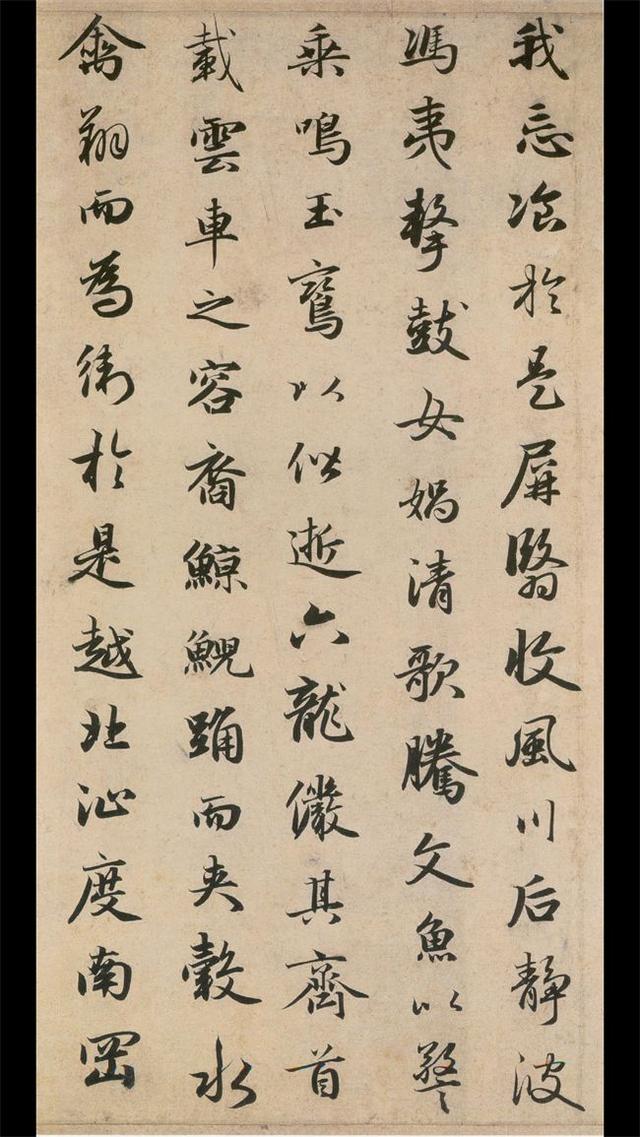 我忘飡於是屏翳收風川后靜波
馮夷擊鼓女媧清歌騰文魚以警
乘鳴玉鸞以偕逝六龍儼其齊首
載雲車之容裔鯨鯢踊而夾轂水
禽翔而為衛於是越北沚度南岡